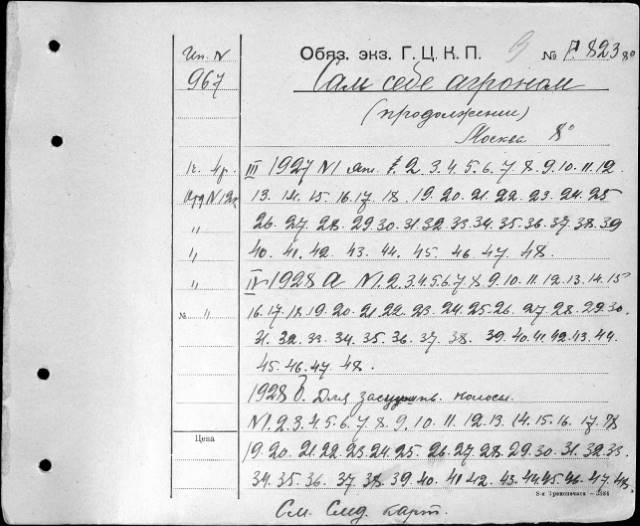 Ин. N
Обяз. экз. Г. Ц. К. П.
№ 823 8°
967
Сам себе агроном
(продолжение)
Москва 8°
III 1927 N1 Янв. 2. 3. 4. 5. 6. 7. 8. 9. 10. 11. 12
13. 14. 15. 16. 17. 18. 19. 20. 21. 22. 23. 24. 25
" 26. 27. 28. 29. 30. 31. 32. 33. 34. 35. 36. 37. 38. 39
" 40. 41. 42. 43. 44. 45. 46. 47. 48.
" IV 1928 а N1. 2. 3. 4. 5. 6. 7. 8. 9. 10. 11. 12. 13. 14. 15
№ " 16. 17. 18. 19. 20. 21. 22. 23. 24. 25. 26. 27. 28. 29. 30.
31. 32. 33. 34. 35. 36. 37. 38. 39. 40. 41. 42. 43. 44.
45. 46. 47. 48.
1928 б. Для засушлив. полосы.
N1. 2. 3. 4. 5. 6. 7. 8. 9. 10. 11. 12. 13. 14. 15. 16. 17. 18
Цена
19. 20. 21. 22. 23. 24. 25. 26. 27. 28. 29. 30. 31. 32. 33.
34. 35. 36. 37. 38. 39. 40. 41. 42. 43. 44. 45. 46. 47. 48.
См. след. карт.